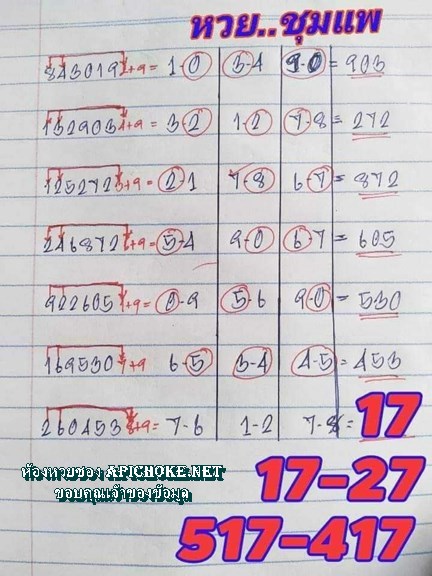 หวย..ชุมแพ
843019 +9 = 1-0 3-4 9-0 = 903
132903 +9 = 3-2 1-2 7-8 = 272
125272 +9 = 2-1 7-8 6-7 = 872
246872 +9 = 5-4 9-0 6-7 = 605
922605 +9 = 0-9 5-6 9-0 = 530
169530 +9 6-5 3-4 4-5 = 453
260453 +9 = 7-6 1-2 7-8 = 17
ห้องหวยของ APICHOKE.NET
ขอบคุณเจ้าของข้อมูล
17-27
517-417